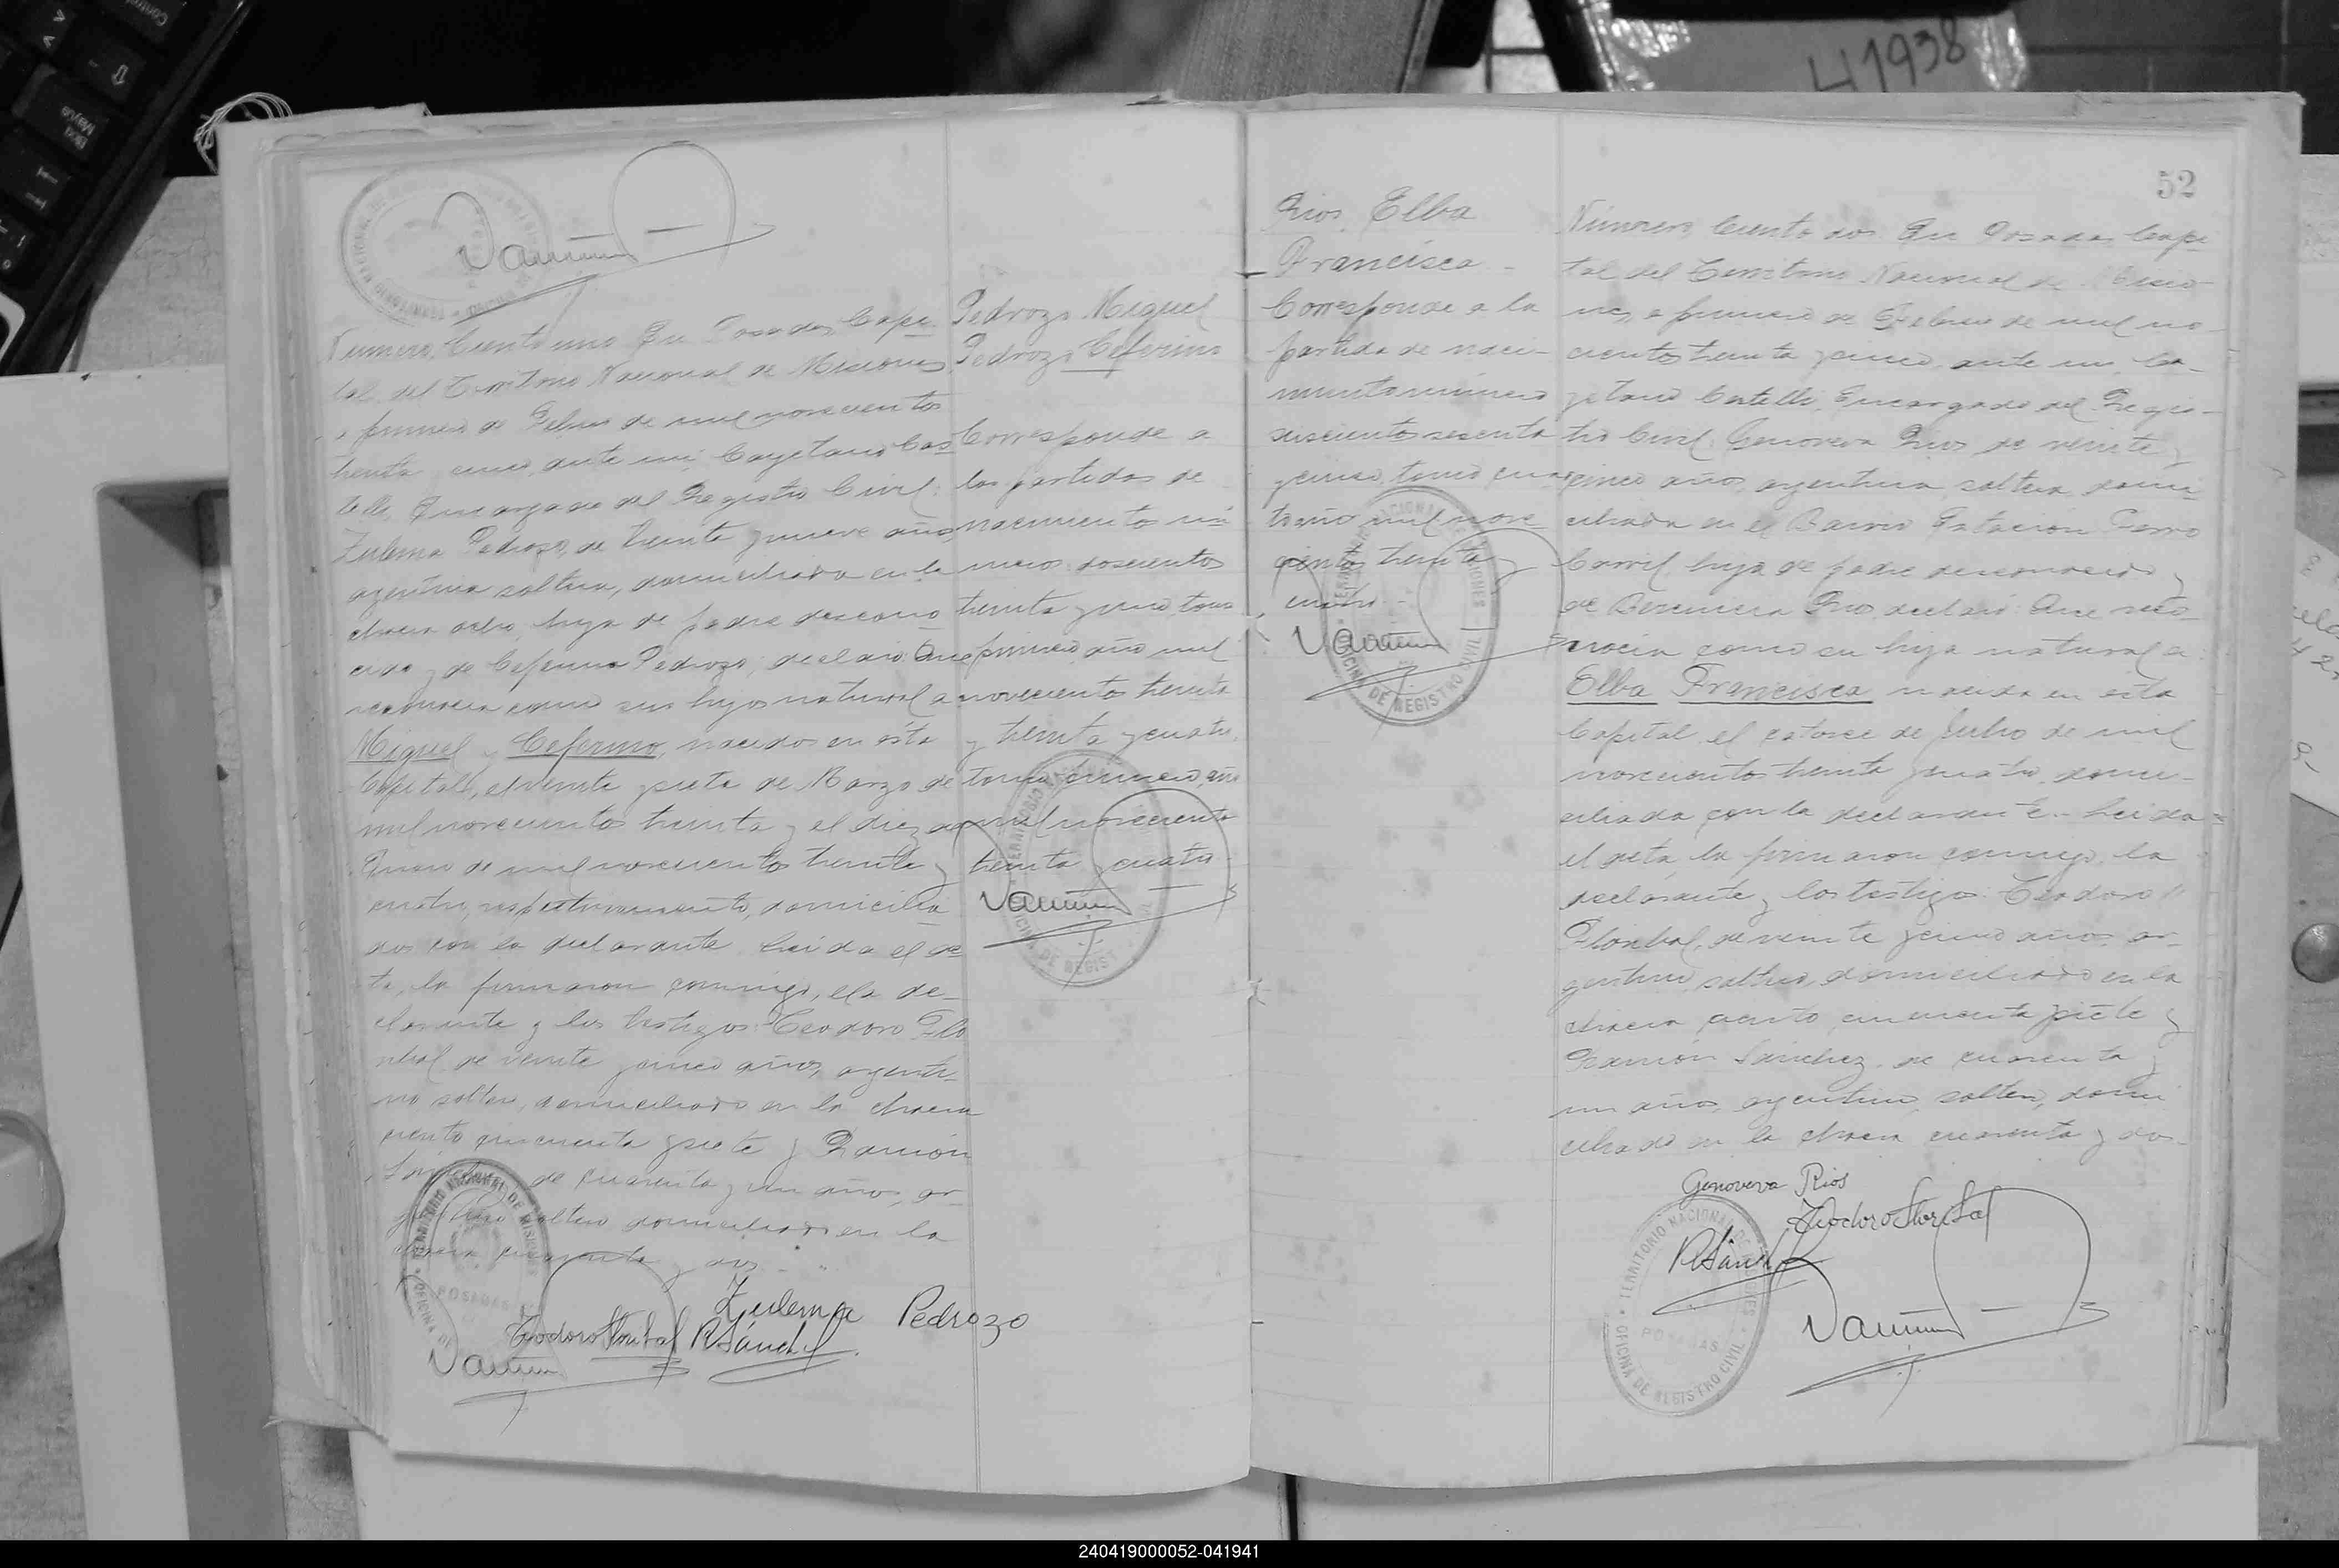 41938
52
Número Ciento uno En Posadas, Capi
tal del Territorio Nacional de Misiones
a primero de Febrero de mil novecientos
treinta y cinco, ante mi, Cayetano Cas
telli, Encargado del Registro Civil:
Zulema Pedrozo, de treinta y nueve años,
argentina soltera, domiciliada en la
chacra ocho, hija de padre descono
cido y de Ceferina Pedrozo, declaró: Que
reconocia como sus hijos natural a
Miguel y Ceferino, nacidos en ésta
Capital, el veinte y siete de Marzo de
mil novecientos treinta y el diez de
de mil novecientos treinta y
cuatro, respectivamente, domicilia
dos con la declarante. Leida el ac
ta, la firmaron conmigo, la de-
clarante y los testigos: Teodoro Flo
ribal, de veinte y cinco años, argenti-
no soltero, domiciliado en la chacra
ciento cincuenta y siete y Ramón
Sánchez de cuarenta y un años, ar-
gentino soltero domiciliado en la
chacra cuarenta y dos -
Zulema Pedrozo
Teodoro Floribal RSánchez
Pedrozo Miguel
Pedrozo Ceferino
Corresponde a
las partidas de
nacimientos nú
meros: doscientos
treinta y uno, tomo
primero, año mil
novecientos treinta
y treinta y cuatro,
tomo primero, año
mil novecientos
treinta y cuatro
Rios, Elba
Francisca -
Corresponde a la
partida de naci-
miento número
seiscientos sesenta
y cinco, tomo cua
to año mil nove
cientos treinta y
cuatro -
Número Ciento dos En Posadas, Capi
tal del Territorio Nacional de Misio-
nes, a primero de Febrero de mil no-
vecientos treinta y cinco, ante mi, Ca-
yetano Castelli, Encargado del Regis-
tro Civil: Genoveva Rios, de veinte y
cinco años, argentina, soltera, domi
ciliada en el Barrio Estación Ferro
Carril, hija de padre desconocido y
de Rios, declaró: Que reco-
nocia como su hija natural a:
Elba Francisca nacida en ésta
Capital, el catorce de Julio de mil
novecientos treinta y cuatro, domi-
ciliada con la declarante.- Leida
el acta, la firmaron conmigo, la
declarante y los testigos: Teodoro
Floribal, de veinte y cinco años, ar-
gentino, soltero, domiciliado en la
chacra ciento cincuenta y siete y
Ramón Sánchez, de cuarenta y
un años, argentino, soltero, domi
ciliado en la chacra cuarenta y dos-
Genoveva Rios
Teodoro Floribal
RSánchez
TERRITORIO NACIONAL DE MISIONES
POSADAS
OFICINA DE REGISTRO CIVIL
240419000052-041941